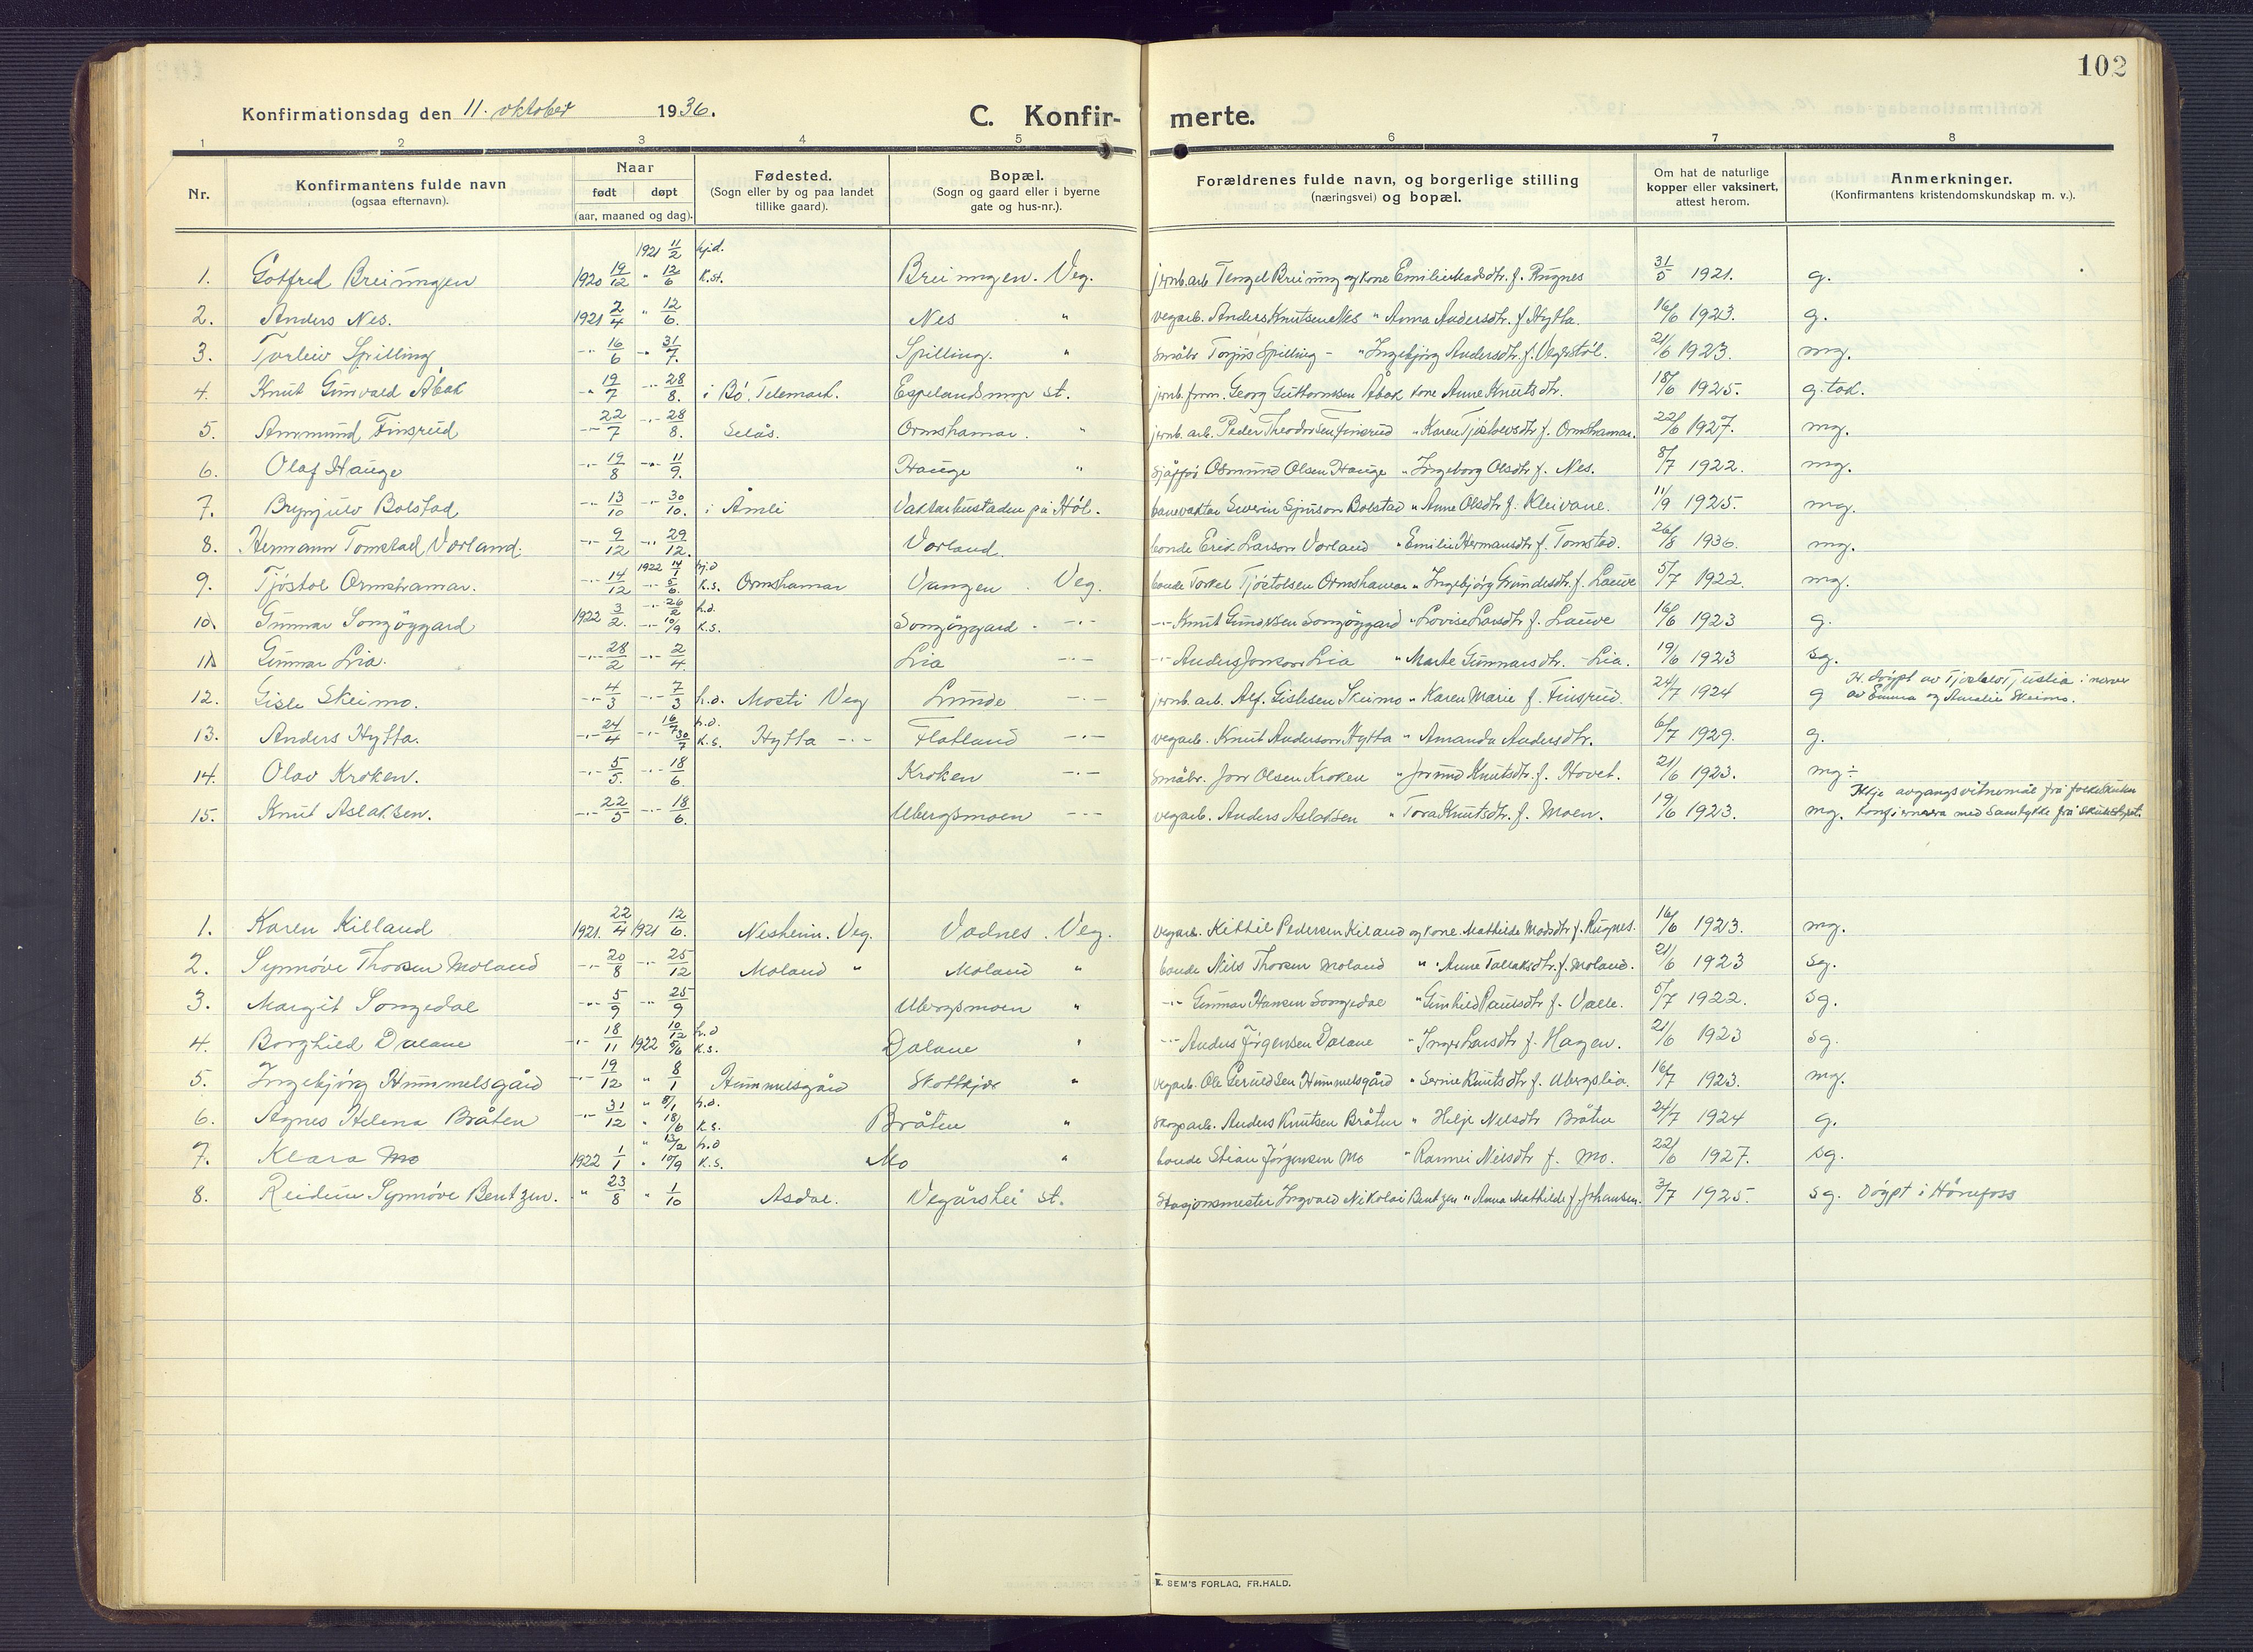 102
Konfirmationsdag den 11. oktober 1936. C. Konfir- merte.
1 2 3 4 5 6 7 8
Nr. Konfirmantens fulde navn (ogsaa efternavn). Naar født døpt (aar, maaned og dag). Fødested. (Sogn eller by og paa landet tillike gaard). Bopæl. (Sogn og gaard eller i byerne gate og hus-nr.). Forældrenes fulde navn, og borgerlige stilling (næringsvei) og bopæl. Om hat de naturlige kopper eller vaksinert, attest herom. Anmerkninger. (Konfirmantens kristendomskundskap m. v.).
1921 11/2 hjd.
1. Gotfred Breiungen 1920 19/12 " 12/6 K.st. Breiungen. Veg. jernb. arb Tengel Breiung og kone Emilie Madsdtr. f. Rugnes 31/5 1921. g.
2. Anders Nes. 1921 2/4 " 12/6. Nes " vegarb. Anders Knutsen Nes " Anna Andersdtr. f. Hytta. 16/6 1923. g.
3. Torleiv Spilling -"- 16/6 -"- 31/7. Spilling. " småbr. Torjus Spilling - " Ingebjørg Andersdtr. f. Vegerstøl. 21/6 1923. mg.
4. Knut Gunvald Åbak -"- 19/7 -"- 28/8. i Bö. Telemark. Espelandsmyr st. jernb. form. Georg Guttormsen Åbak kone Anne Knutsdtr. 18/6 1925. g. tok.
5. Anmund Finsrud -"- 22/7 -"- 28/8. Selås. Ormshamar. " jernb. arb. Peder Theodorsen Finsrud " Karen Tjøstolvsdtr f. Ormshamar. 22/6 1927. mg.
6. Olaf Hauge -"- 19/8 -"- 11/9. Hauge " sjåffør Osmund Olsen Hauge " Ingeborg Olsdtr f. Nes. 8/7 1922. mg.
7. Brynjulv Bolstad -"- 13/10 -"- 30/10. i Åmli Vaktarbustaden på Höl. banevaktar Severin Sjursson Bolstad " Anne Olsdtr f. Kleivane. 11/9 1925. mg.
8. Hermann Tomstad Vorland. -"- 9/12 -"- 29/12. Vorland. bonde Erik Larson Vorland " Emilie Hermansdtr f. Tomstad. 26/8 1936. mg.
1922 14/1 hj.d
9. Tjöstol Ormshamar. -"- 14/12 -"- 5/6. K.s. Ormshamar Vangen . Veg. bonde Torkel Tjöstolsen Ormshamar " Ingebjörg Gundersdtr. f. Lauve 5/7 1922. mg.
-"- 26/2 h.d.
10. Gunnar Songöygard 1922 3/2. -"- 10/9 K.s. Songöygard . -"- -"- Knut Gundersen Songöygard " Lovise Larsdtr f. Lauve 16/6 1923 g.
11. Gunnar Lia. -"- 28/2 -"- 2/4. Lia -"- -"- Anders Jonsson Lia " Marte Gunnarsdtr. - Lia. 19/6 1923 sg.
12. Gisle Skeimo. -"- 4/3 -"- 7/3 h.d. Mosti Veg Lunde -"- jernb. arb. Alf. Gislesen Skeimo " Karen Marie f. Finsrud. 24/7 1924 g H. döypt av Tjostolv Tjustia i nærver av Emma og Amalie Skeimo.
16/7 h.d.
13. Anders Hytta. -"- 24/4 -"- 30/7 K.s. Hytta -"- Flatland -"- vegarb. Knut Anderson Hytta " Amanda Andersdtr. 6/7 1929. g.
14. Olav Kroken. -"- 5/5. -"- 18/6 Kroken -"- småbr. Jon Olsen Kroken " Jorund Knutsdtr. f. Hovet. 21/6 1923. mg÷
15. Knut Aslaksen. -"- 22/5 -"- 18/6. Ubergsmoen -"- vegarb. Anders Aslaksen " Tora Knutsdtr. f. Moen. 19/6 1923. mg. Ikkje avgangsvitnemål frå folkeskulen konfirmera med samtykke frå skulestyret.
1. Karen Killand 1921. 22/4 1921 12/6. Nesheim. Veg. Vadnes . Veg. vegarb. Kittil Pedersen Kiland og kone. Mathilde Madsdtr f. Rugnes. 16/6 1923. mg.
2. Synnöve Thorsen Moland -"- 20/8 -"- 25/12 Moland " Moland " bonde Nils Thorsen Moland " Anne Tallaksdtr. f. Moland. 21/6 1923 sg.
3. Margit Songedal -"- 5/9 -"- 25/9 Ubergsmoen " -"- Gunnar Hansen Songedal " Gunhild Paulsdtr f. Valle. 5/7 1922. sg.
10/12 h.d
4. Borghild Dalane -"- 18/11 1922 5/6 K.s. Dalane " -"- Anders Jörgensen Dalane " Inger Larsdtr f. Hagen. 21/6 1923 sg.
5. Ingebjörg Hummelsgård -"- 19/12 " 8/1 Hummelsgård Skottkjær " vegarb. Ole Geruldsen Hummelsgård " Serine Knutsdtr f. Ubergslia. 16/7 1923. mg.
" 8/1 h.d.
6. Agnes Helena Bråten -"- 31/12 " 18/6 K.s. Bråten " skogarb. Anders Knutsen Bråten " Helje Nilsdtr Bråten 24/7 1924 g.
" 12/2 h.d
7. Klara Mo 1922 1/1 " 10/9 K.s. Mo " bonde Stian Jörgensen Mo " Ranvei Neisdtr f. Mo. 22/6 1927. sg.
8. Reidun Synnöve Bentzen. " 23/8 " 1/10 Asdal. Vegårshei st. Stasjonsmester Ingvald Nikolai Bentzen " Anna Mathilde f. Johansen. 3/7 1925. sg. Döypt i Hönefoss
E. SEM'S FORLAG, FR.HALD.